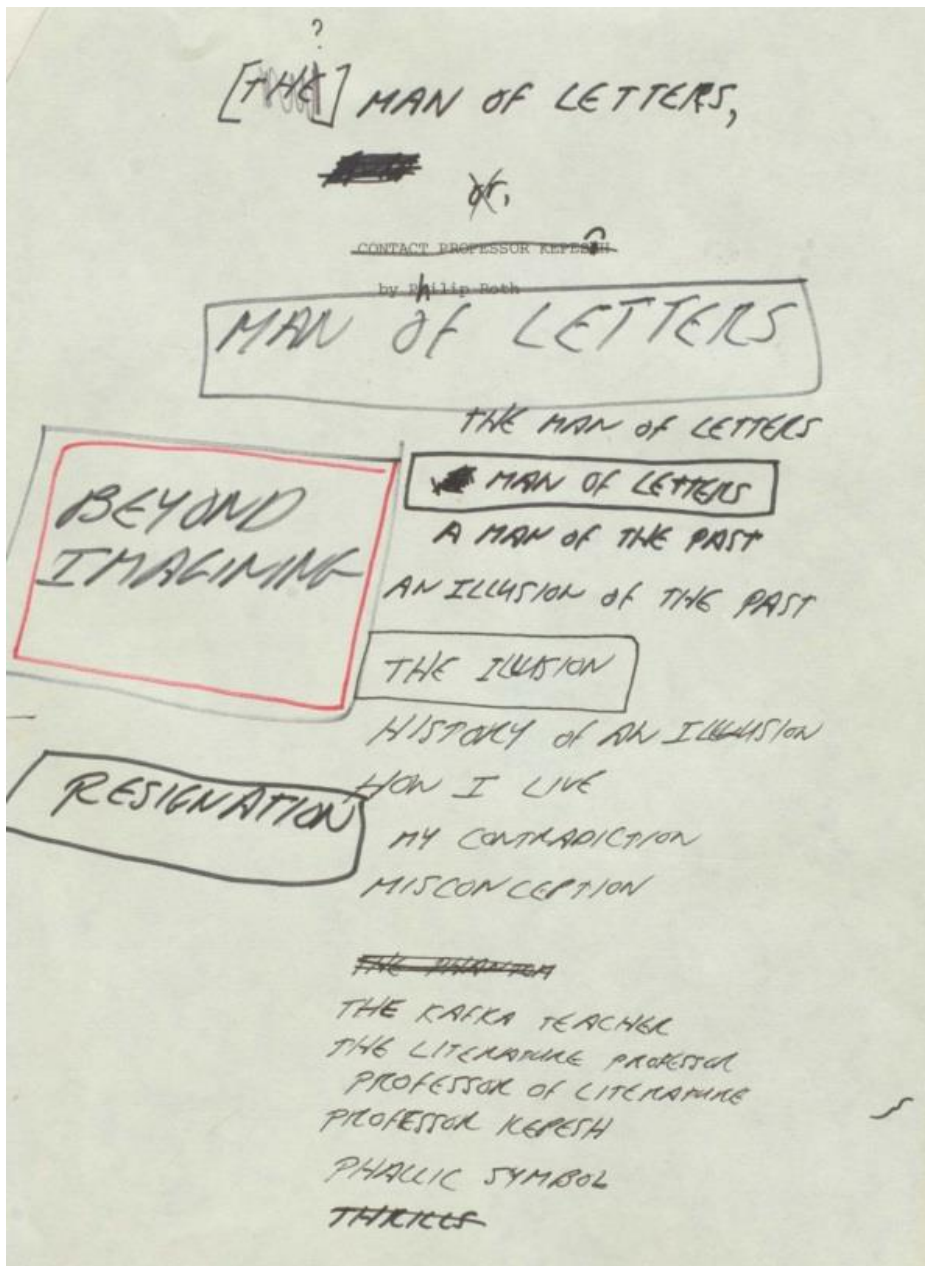 ?
[THE] MAN OF LETTERS,
or,
CONTACT PROFESSOR KEPESH
by Philip Roth
MAN OF LETTERS
THE MAN OF LETTERS
MAN OF LETTERS
A MAN OF THE PAST
BEYOND
IMAGINING
AN ILLUSION OF THE PAST
THE ILLUSION
HISTORY of AN ILLUSION
RESIGNATION
HOW I LIVE
MY CONTRADICTION
MISCONCEPTION
THE PHANTOM
THE KAFKA TEACHER
THE LITERATURE PROFESSOR
PROFESSOR OF LITERATURE
PROFESSOR KEPESH
PHALLIC SYMBOL
THRILLS